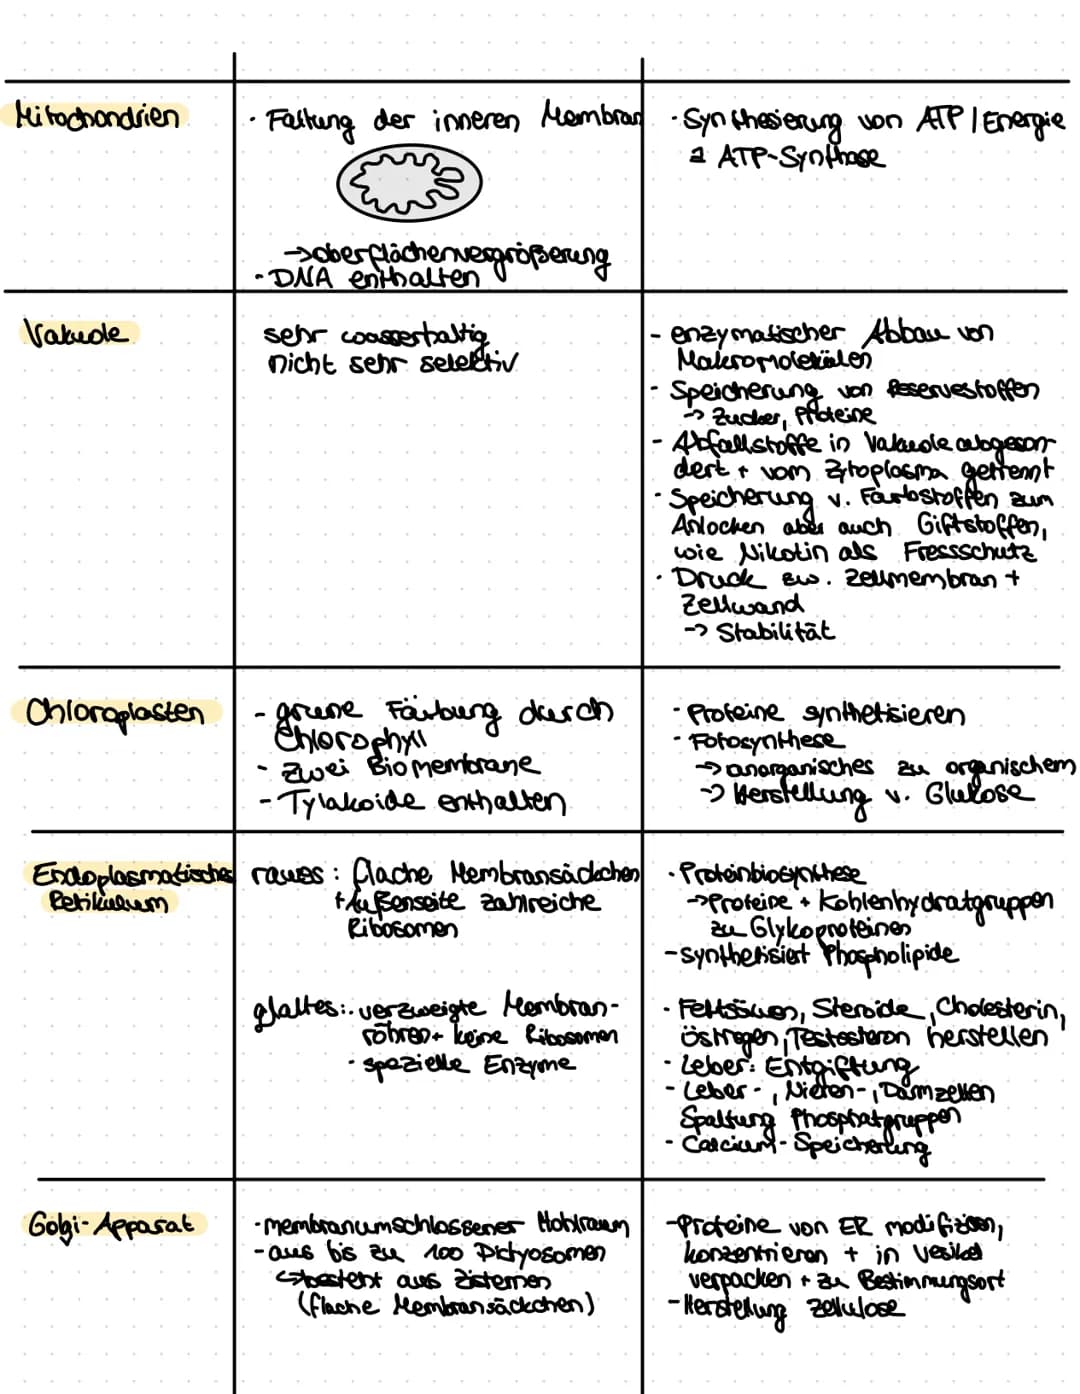 Mitochondrien
· Faltung der inneren Membran
→ oberflächenvergrößerung
- DNA enthalten
· Synthesierung von ATP | Energie
ATP-Synthase
Vakuole
sehr wasserhaltig
nicht sehr selektiv
- enzymatischer Abbau von
Makromolekülen
- Speicherung von Reservestoffen
→ Zucker, Proteine
- Abfallstoffe in Vakuole abgeson-
dert + vom Zytoplasma getrennt
· Speicherung v. Farbstoffen zum
Anlocken aber auch Giftstoffen,
wie Nikotin als Fressschutz
· Druck zw. Zellmembran +
Zellwand
→ Stabilität
Chloroplasten
- grüne Färbung durch
Chlorophyll
- zwei Biomembrane
- Tylakoide enthalten
· Proteine synthetisieren
- Fotosynthese
→ anorganisches zu organischem
→ Herstellung v. Glukose
Endoplasmatisches
Retikulum
raues: flache Membransäckchen
+ Außenseite zahlreiche
Ribosomen
· Proteinbiosynthese
→ Proteine + Kohlenhydratgruppen
zu Glykoproteinen
- synthetisiert Phospholipide
glattes: · verzweigte Membran-
röhren + keine Ribosomen
· spezielle Enzyme
· Fettsäuren, Steroide, Cholesterin,
Östrogen, Testosteron herstellen
- Leber: Entgiftung
- Leber-, Nieren-, Darmzellen
Spaltung Phosphatgruppen
- Calcium-Speicherung
Golgi-Apparat
· membranumschlossener Hohlraum
- aus bis zu 100 Dictyosomen
↪ besteht aus Zisternen
(flache Membransäckchen)
- Proteine von ER modifizieren,
konzentrieren + in Vesikel
verpacken + zu Bestimmungsort
- Herstellung Zellulose